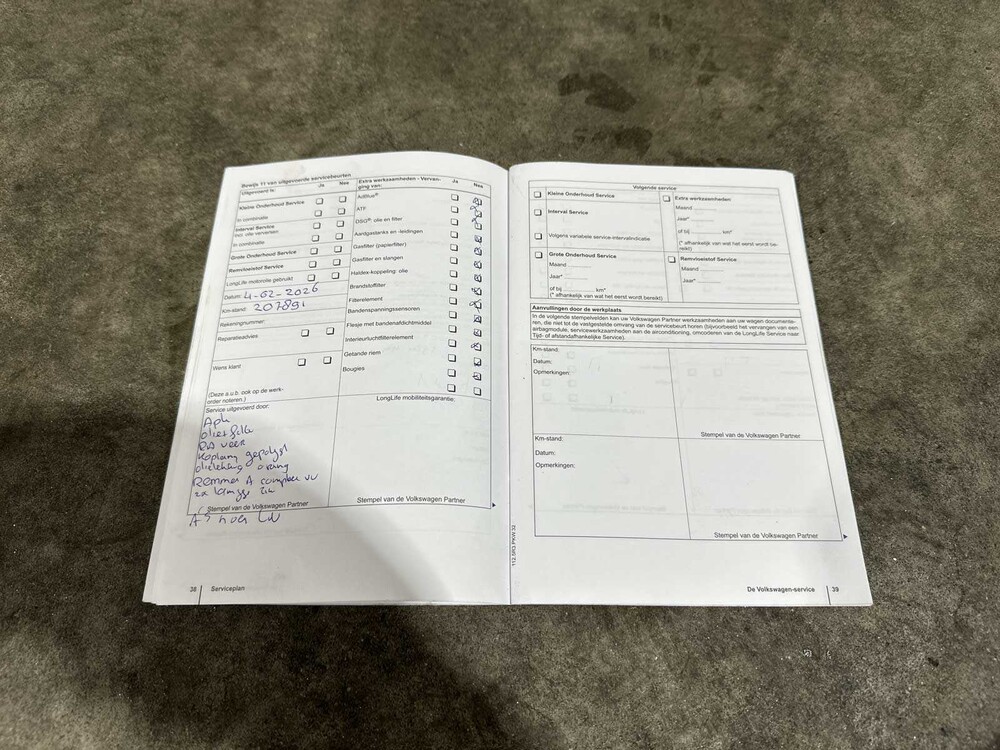 Bewijs 11 van uitgevoerde servicebeurten
Uitgevoerd is:
Ja Nee
Kleine Onderhoud Service
In combinatie
Interval Service
Incl. olie verversen
In combinatie
Grote Onderhoud Service
Remvloeistof Service
LongLife-motorolie gebruikt
Datum: 4-02-2026
Km-stand: 207891
Rekeningnummer:
Reparatieadvies
Wens klant
(Deze a.u.b. ook op de werk-
order noteren.)
Extra werkzaamheden - Vervan-
ging van:
Ja Nee
AdBlue®
ATF
DSG®: olie en filter
Aardgastanks en -leidingen
Gasfilter (papierfilter)
Gasfilter en slangen
Haldex-koppeling: olie
Brandstoffilter
Filterelement
Bandenspanningssensoren
Flesje met bandenafdichtmiddel
Interieurluchtfilterelement
Getande riem
Bougies
Service uitgevoerd door:
RA veer
Koplamp gepolijst
Remmen A compleet VV
Stempel van de Volkswagen Partner
LongLife mobiliteitsgarantie:
Stempel van de Volkswagen Partner
38 Serviceplan
Volgende service
Kleine Onderhoud Service
Interval Service
Volgens variabele service-intervalindicatie
Grote Onderhoud Service
Maand
Jaar*
of bij km*
(* afhankelijk van wat het eerst wordt bereikt)
Extra werkzaamheden:
Maand
Jaar*
of bij km*
(* afhankelijk van wat het eerst wordt be-
reikt)
Remvloeistof Service:
Maand
Jaar*
Aanvullingen door de werkplaats
In de volgende stempelvelden kan uw Volkswagen Partner werkzaamheden aan uw wagen documente-
ren, die niet tot de vastgestelde omvang van de servicebeurt horen (bijvoorbeeld het vervangen van een
airbagmodule, servicewerkzaamheden aan de airconditioning, omcoderen van de LongLife Service naar
Tijd- of afstandafhankelijke Service).
Km-stand:
Datum:
Opmerkingen:
Stempel van de Volkswagen Partner
Km-stand:
Datum:
Opmerkingen:
Stempel van de Volkswagen Partner
112.5R3.PKW.32
De Volkswagen-service 39